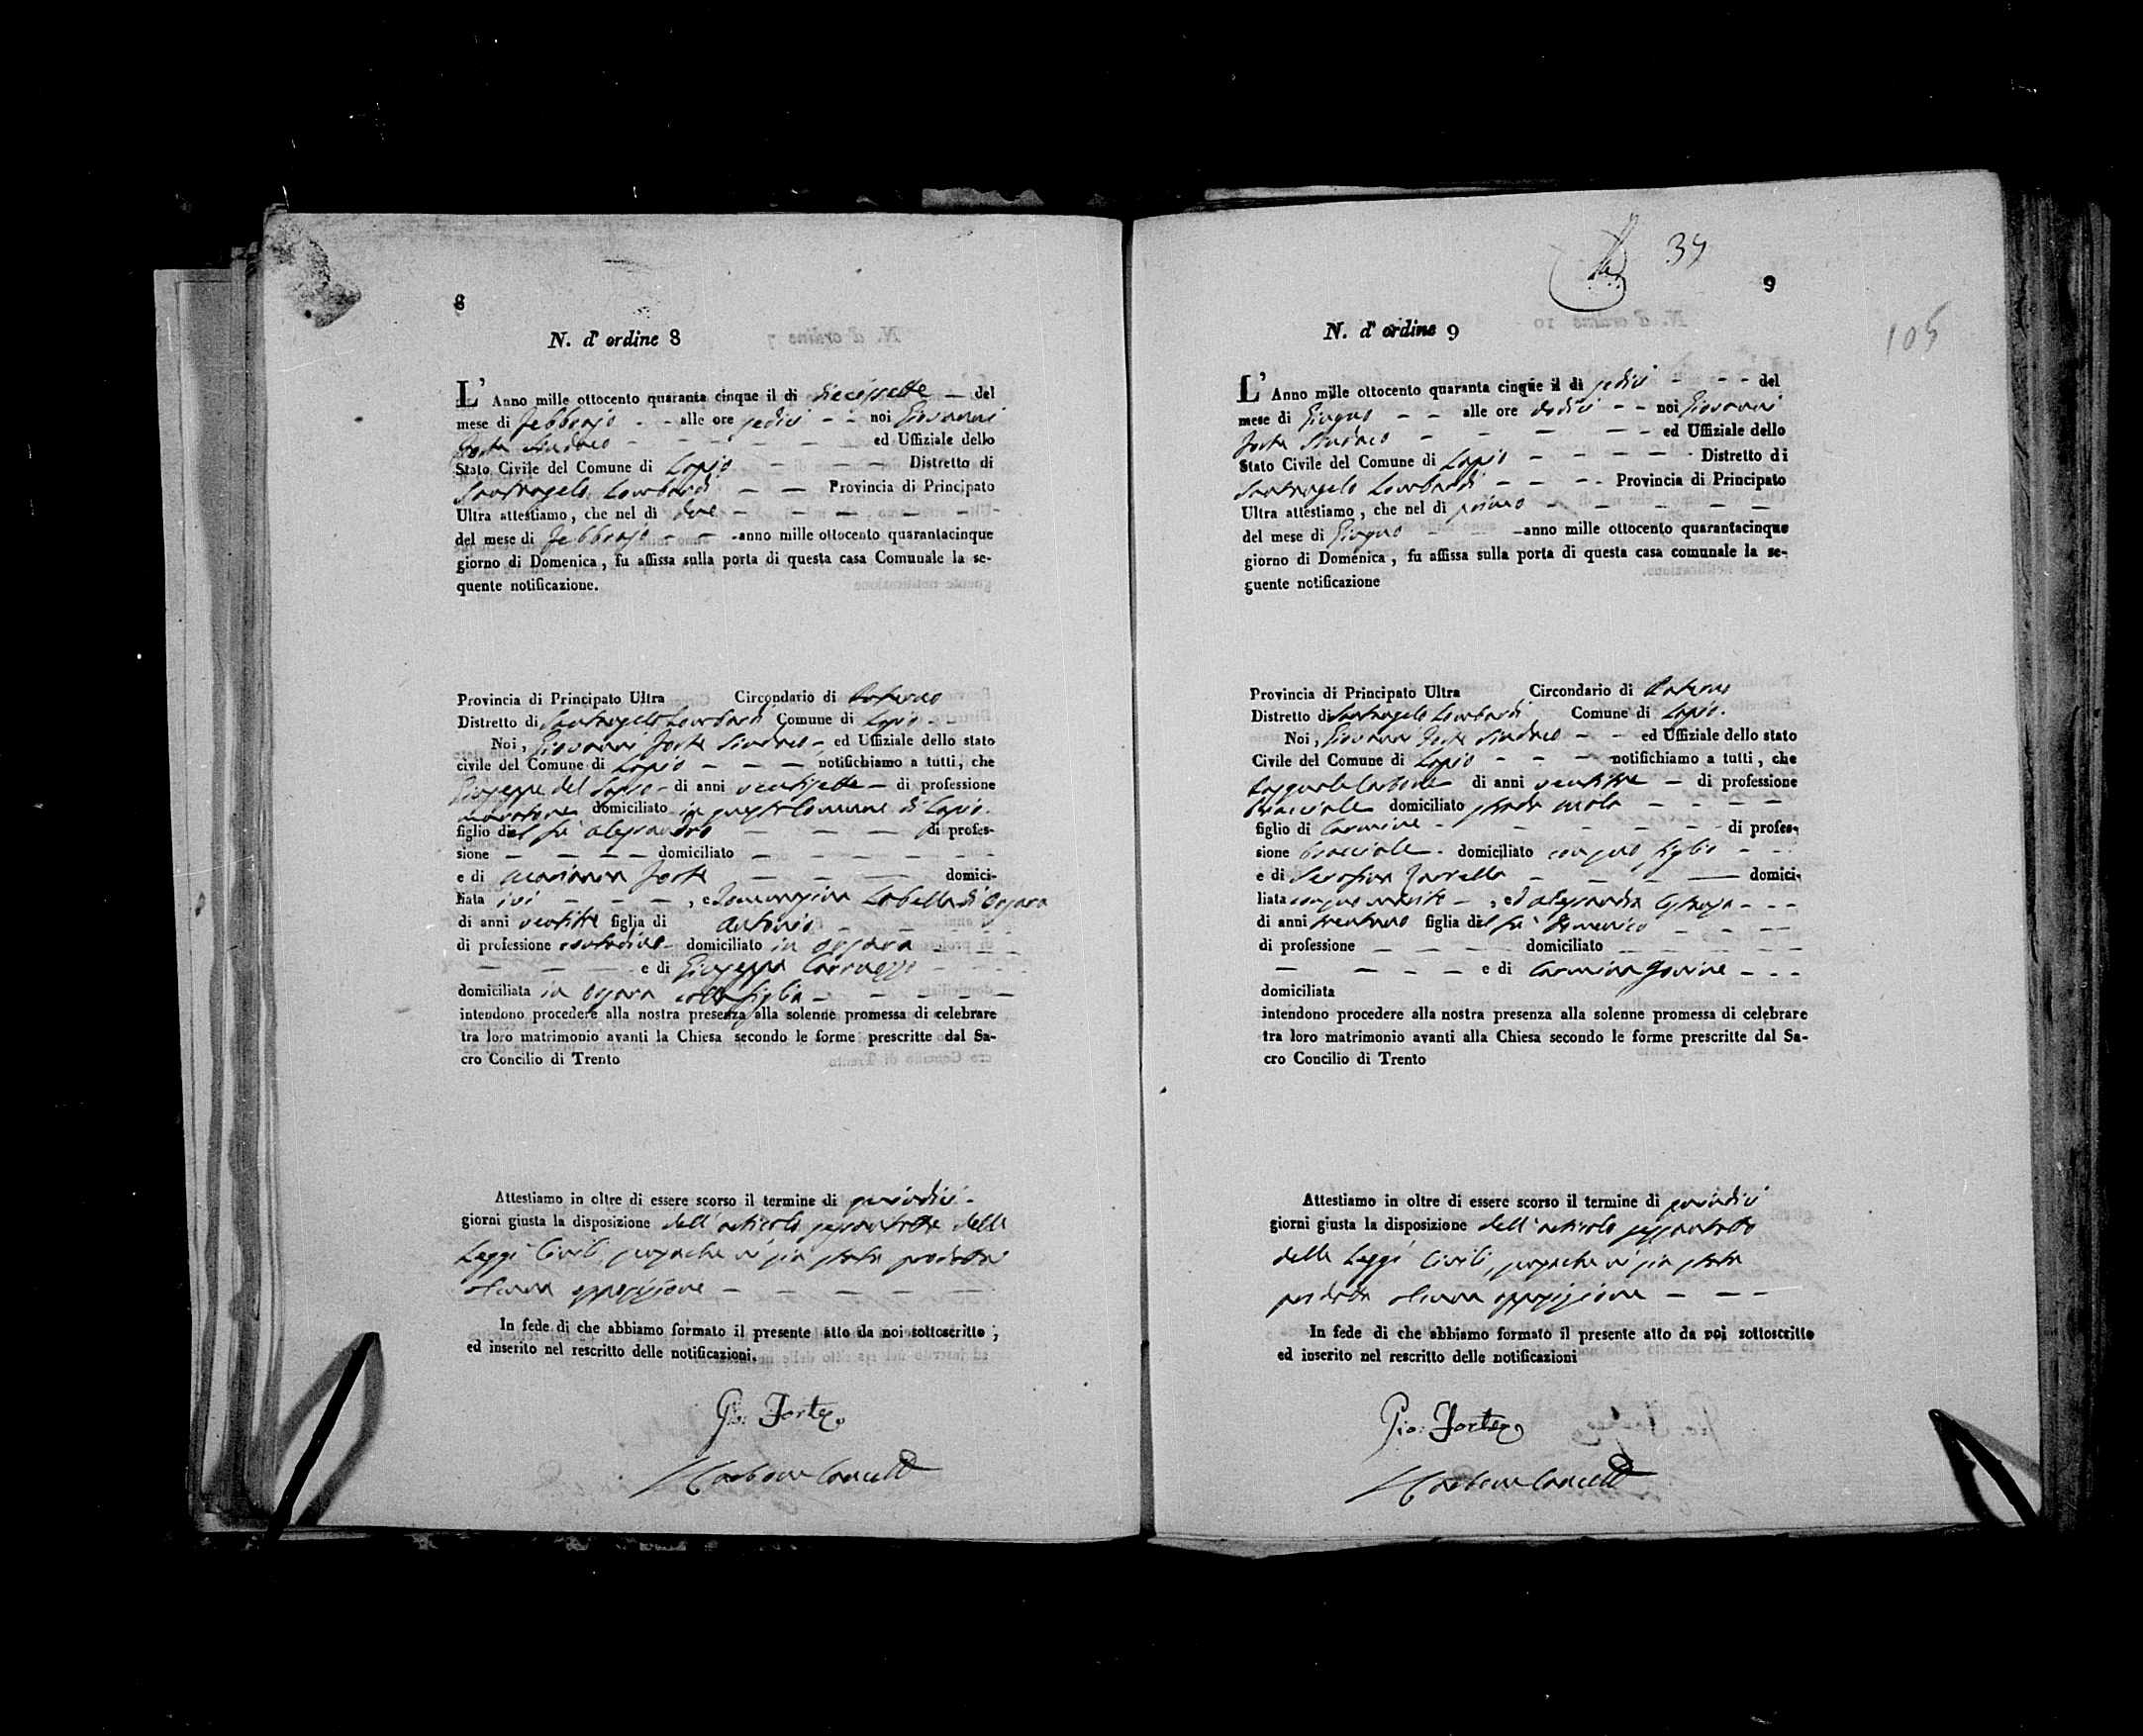 8
N. d' ordine 8
L' Anno mille ottocento quaranta cinque il dì diecissette — del
mese di Febbrajo - - alle ore sedici - - noi Giovanni
Forte Sindaco - - - - - ed Uffiziale dello
Stato Civile del Comune di Lapio - - - Distretto di
Santangelo Lombardi — — Provincia di Principato
Ultra attestiamo, che nel dì due - - - - -
del mese di Febbrajo - - -anno mille ottocento quarantacinque
giorno di Domenica, fu affissa sulla porta di questa casa Comunale la se-
quente notificazione.
Provincia di Principato Ultra Circondario di Paterno
Distretto di Santangelo Lombardi Comune di Lapio - -
Noi, Giovanni Forte Sindaco -, ed Uffiziale dello stato
civile del Comune di Lapio - - - notifichiamo a tutti, che
Giuseppe del - di anni ventisette - di professione
domiciliato in questo Comune di Lapio.
figlio del fù Alessandro - - - di profes-
sione - - - - domiciliato - - - - - -
e di Marianna Forte - - - domici-
liata ivi - - - , e Labella di
di anni ventitre figlia di Antonio - - - -
di professione contadino - domiciliato in - - -
- - - e di Giuseppa - - - -
domiciliata in colla figlia - - - - -
intendono procedere alla nostra presenza alla solenne promessa di celebrare
tra loro matrimonio avanti la Chiesa secondo le forme prescritte dal Sa-
cro Concilio di Trento
Attestiamo in oltre di essere scorso il termine di quindici -
giorni giusta la disposizione dell'articolo sessantotto delle
Leggi Civili, senzache vi sia stata prodotta
alcuna opposizione - - - - -
In fede di che abbiamo formato il presente atto da noi sottoscritto,
ed inserito nel rescritto delle notificazioni.
Gio: Forte
Carbone Cancell
39
9
105
N. d' ordine 9
L' Anno mille ottocento quaranta cinque il dì sedici - - - del
mese di Giugno - - alle ore dodici - - noi Giovanni
Forte Sindaco - - - - - ed Uffiziale dello
Stato Civile del Comune di Lapio - - - - Distretto di
Santangelo Lombardi - - - - Provincia di Principato
Ultra attestiamo, che nel dì primo - - - - -
del mese di Giugno - - -anno mille ottocento quarantacinque
giorno di Domenica, fu affissa sulla porta di questa casa comunale la se-
guente notificazione
Provincia di Principato Ultra Circondario di Paterno
Distretto di Santangelo Lombardi Comune di Lapio.
Noi, Giovanni Forte Sindaco - - ed Uffiziale dello stato
Civile del Comune di Lapio - - - notifichiamo a tutti, che
Pasquale Carbone di anni ventitre - di professione
bracciale domiciliato strada - - - -
figlio di Carmine - - - - - - di profes-
sione bracciale - domiciliato con suo figlio - - -
e di Serafina - - - - domici-
liata con suo marito - , ed Alessandra - - -
di anni trentuno figlia del fù Domenico - - - -
di professione - - - - domiciliato - - - - -
- - - - e di Carmina - - -
domiciliata
intendono procedere alla nostra presenza alla solenne promessa di celebrare
tra loro matrimonio avanti alla Chiesa secondo le forme prescritte dal Sa-
cro Concilio di Trento
Attestiamo in oltre di essere scorso il termine di quindici
giorni giusta la disposizione dell'articolo sessantotto
delle Leggi Civili, senzache vi sia stata
prodotta alcuna opposizione - - -
In fede di che abbiamo formato il presente atto da noi sottoscritto
ed inserito nel rescritto delle notificazioni
Gio: Forte
Carbone Cancell